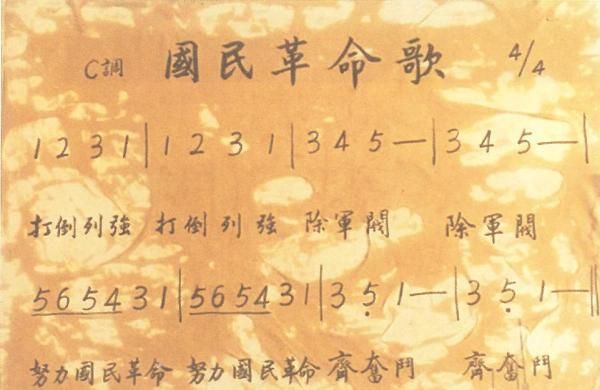 C調 國民革命歌 4/4
1 2 3 1 | 1 2 3 1 | 3 4 5 — | 3 4 5 — |
打倒列強 打倒列強 除軍閥 除軍閥
5 6 5 4 3 1 | 5 6 5 4 3 1 | 3 5̣ 1 — | 3 5̣ 1 — ‖
努力國民革命 努力國民革命 齊奮鬥 齊奮鬥